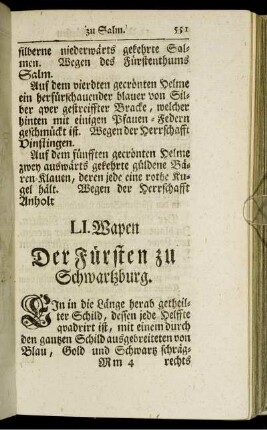 zu Salm. 551
silberne niederwärts gekehrte Sal-
men. Wegen des Fürstenthums
Salm.
Auf dem vierdten gecrönten Helme
ein herfürschauender blauer von Sil-
ber qver gestreiffter Bracke, welcher
hinten mit einigen Pfauen-Federn
geschmückt ist. Wegen der Herrschafft
Vinstingen.
Auf dem fünfften gecrönten Helme
zwey auswärts gekehrte güldene Bä-
ren-Klauen, deren jede eine rothe Ku-
gel hält. Wegen der Herrschafft
Anholt
LI. Wapen
Der Fürsten zu
Schwartzburg.
EIn in die Länge herab getheil-
ter Schild, dessen jede Helffte
qvadrirt ist, mit einem durch
den gantzen Schild ausgebreiteten von
Blau, Gold und Schwartz schräg-
Mm 4 rechts